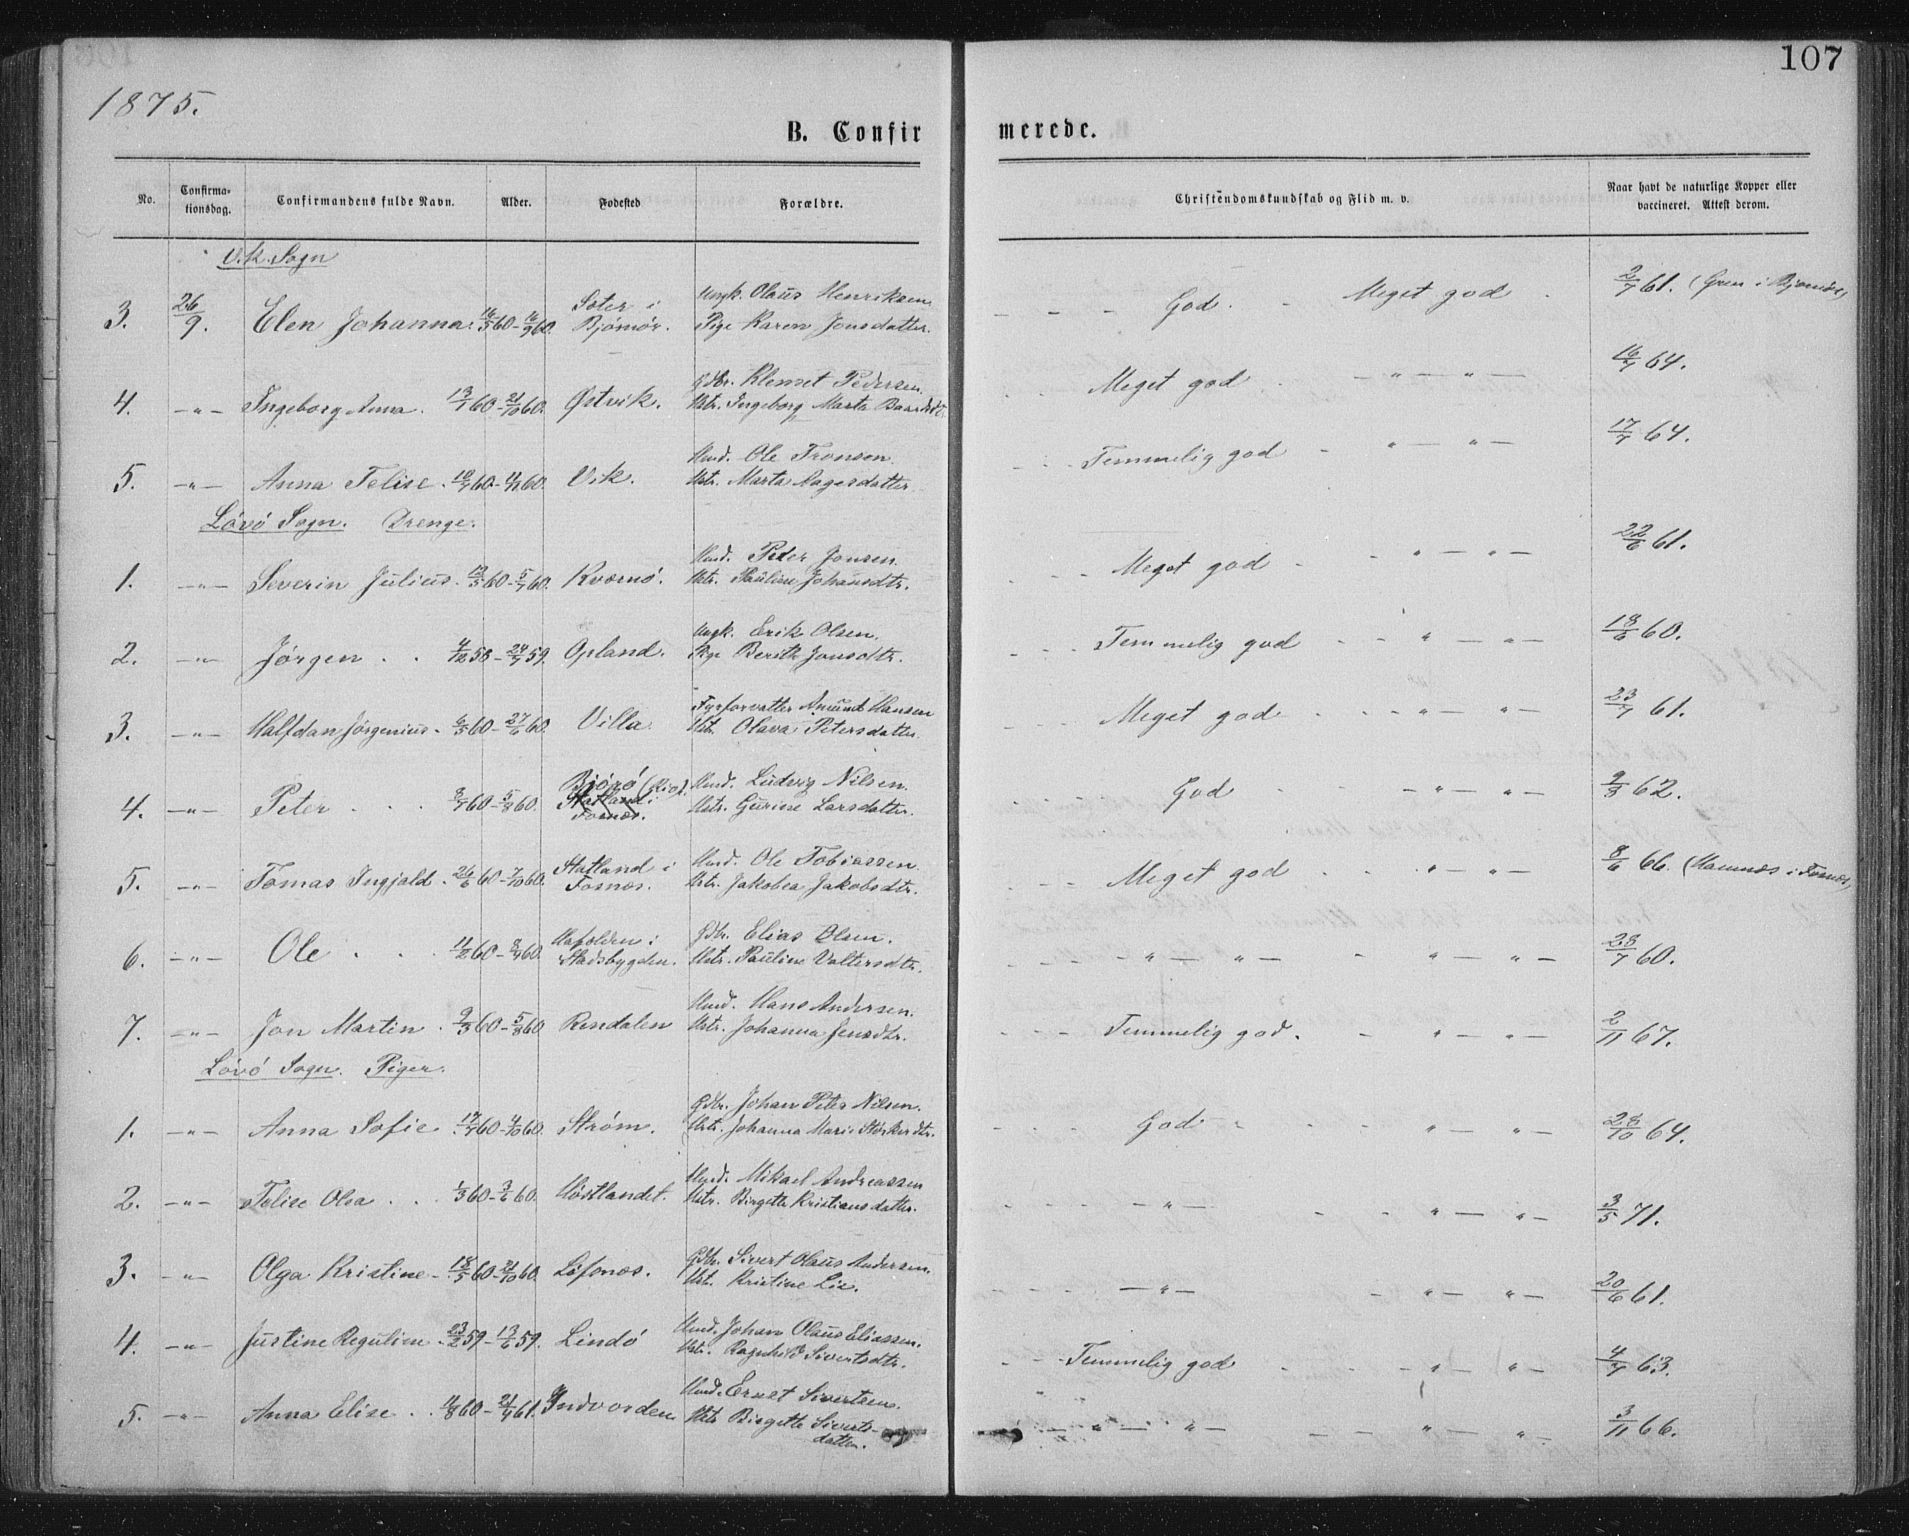 107
1875.
B. Confirmerede.
No. Confirmationsdag. Confirmandens fulde Navn. Alder. Fødested Forældre. Christendomskundskab og Flid m. v. Naar havt de naturlige Kopper eller vaccineret. Attest derom.
Vik Sogn
3. 26/9. Elen Johanna. Sæter i Bjørnør. Ungk. Olaus Henriksen. Pige Karen Jonsdatter. God. Meget god 2/7 61.
4. -"- Ingeborg Anna. 13/7 60 - 21/10 60. Østvik. Gdbr. Klemet Pedersen. Hstr. Ingeborg Marta Meget god -"- "- 16/7 64.
5. -"- Anna Felise. Vik. Hmd. Ole Tronsen. Hstr. Marta Aagesdatter Temmelig god " - " - 17/7 64.
Løvø Sogn. Drenge.
1. -"- Severin Julius. 13/5 60 - 5/7 60. Kvernø. Hmd. Peter Jonsen. Hstr. Pauline Johansdtr. Meget god - " - " - 22/6 61.
2. -"- Jørgen. 4/12 58 - 24/7 59. Opland. Ungk. Erik Olsen. Pige Berith Jonsdtr. Temmelig god - " - " - 18/6 60.
3. -"- Halfdan Jørgenius. 6/5 60 - 27/6 60. Villa. Fyrforvalter Amund Hansen Hstr. Olava Petersdatter. Meget god - " - " - 23/7 61.
4. -"- Peter 3/7 60 - 5/8 60. Bjørø Statland i Fosnæs. Hmd. Ludvig Nilsen. Hstr. Gurine Larsdatter. God - " - " - 9/3 62.
5. -"- Tomas Ingjald. 26/6 60 - 7/10 60. Statland i Fosnæs. Hmd. Ole Tobiassen. Hstr. Jakobea Jakobsdtr. Meget god " - " - 8/6 66. (Hamnæs i Fosnæs)
6. -"- Ole 11/2 60 - 8/4 60. Stadsbygden. Gdbr. Elias Olsen. Hstr. Pauline Valtersdtr. - " - " - " - " - 23/7 60.
7. -"- Jon Martin. 9/3 60 - 5/8 60 Rendalen Hmd. Hans Andersen. Hstr. Johanna Jensdtr. Temmelig god. - " - " - 2/11 67.
Løvø Sogn. Piger.
1. -"- Anna Sofie 17/7 60 - 4/10 60. Strøm. Gdbr. Johan Peter Nilsen. Hstr. Johanna Marie God " - " - 28/10 64.
2. -"- Felise Olea 1/3 60 - 3/6 60. Høstlandet. Hmd. Mikael Andreassen Hstr. Birgitte Kristiansdatter. - " - - " - " - 3/5 71.
3. -"- Olga Kristine 18/5 60 - 21/10 60. Løfsnes. Gdbr. Sivert Olaus Andersen. Hstr. Kristine Lie. - " - - " - " - 20/6 61.
4. -"- Justine Reguline 23/2 59 - 13/6 59. Lindø Hmd. Johan Olaus Eliassen. Hstr. Ragnhild Sivertsdtr. Temmelig god " - " - 4/7 63.
5. -"- Anna Elise 11/8 60 - 21/4 61. Indvorden Hmd. Ernst Sivertsen. Hstr Birgitte Siverts- datter. - " - " - " " - 3/11 66.